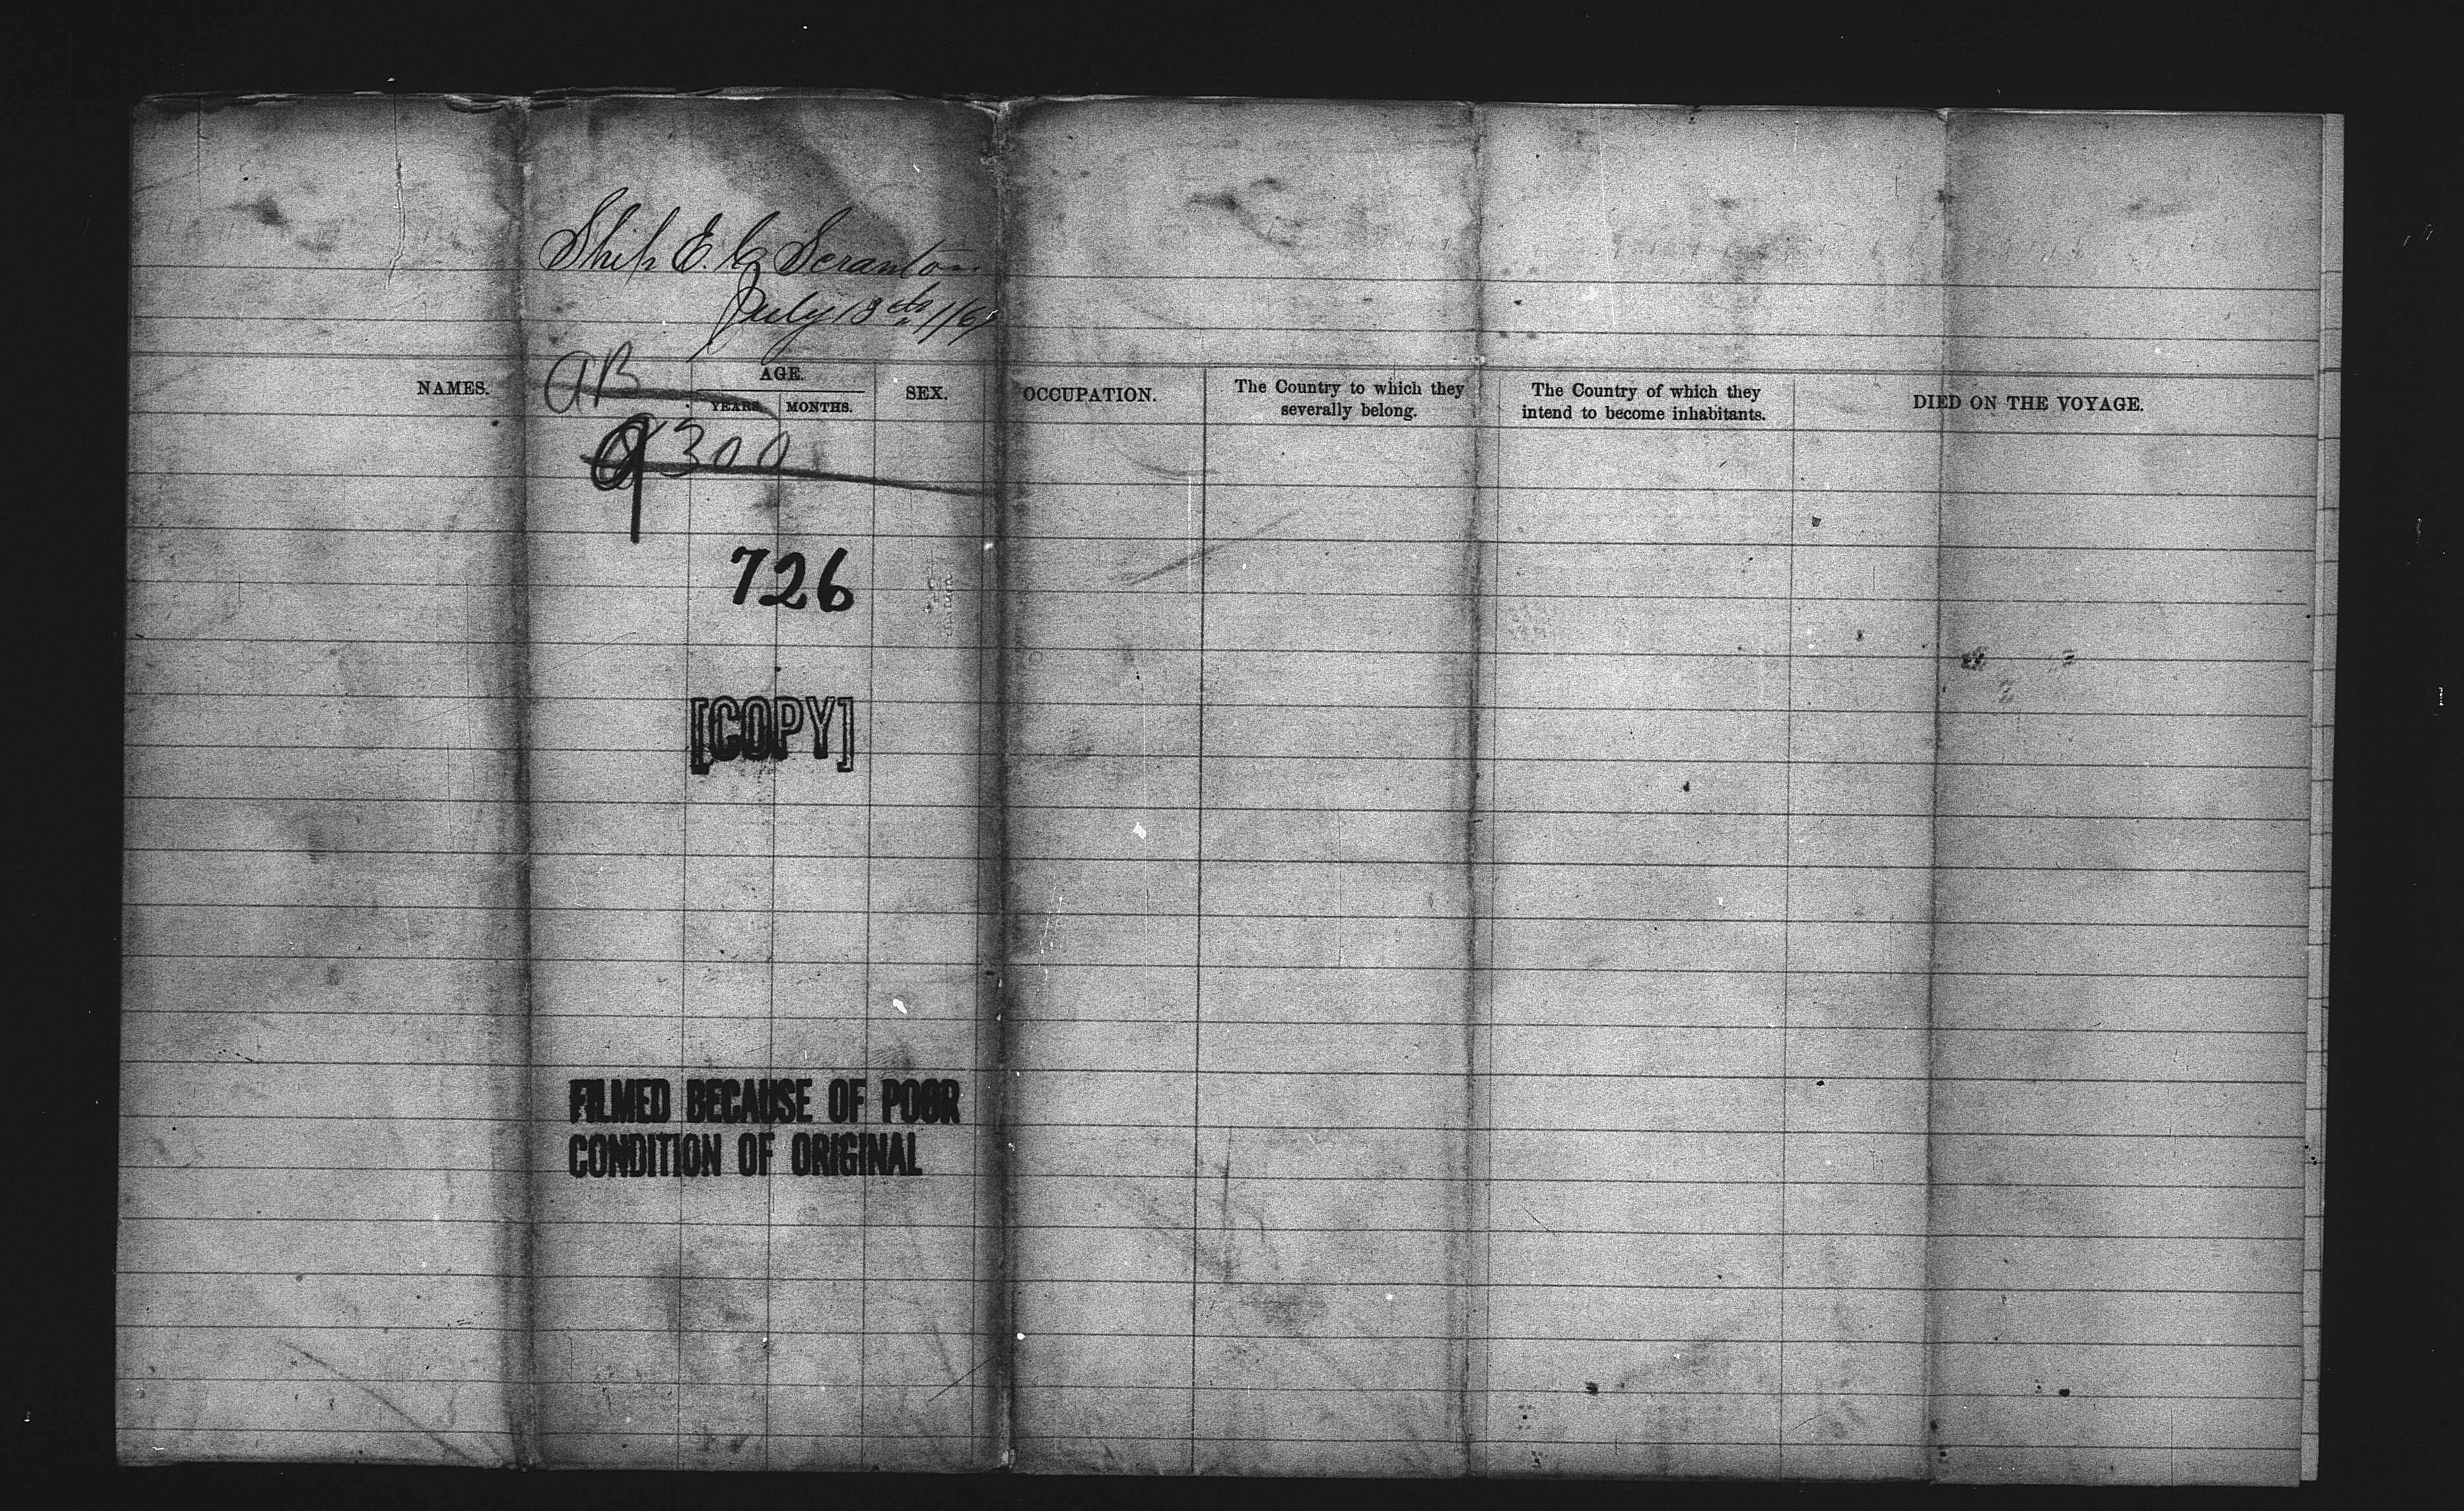 Ship E. C. Scranton
July 13th
AB
NAMES.
AGE.
YEARS. MONTHS.
SEX.
OCCUPATION.
The Country to which they
severally belong.
The Country of which they
intend to become inhabitants.
DIED ON THE VOYAGE.
300
726
[COPY]
FILMED BECAUSE OF POOR
CONDITION OF ORIGINAL